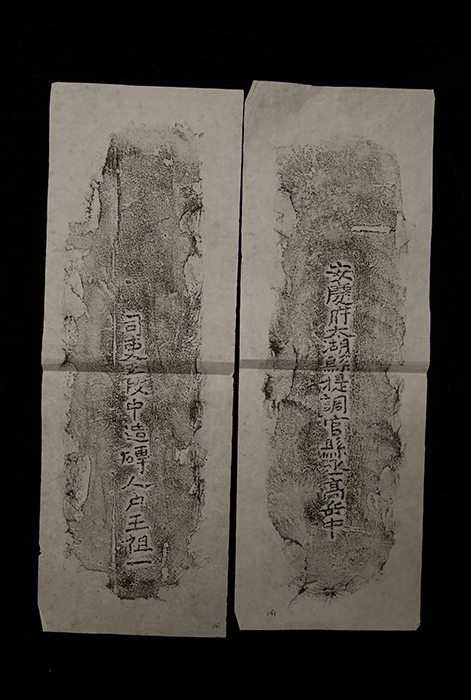 安慶府太湖縣提調官縣丞高岳中
司吏段中造磚人户王祖一